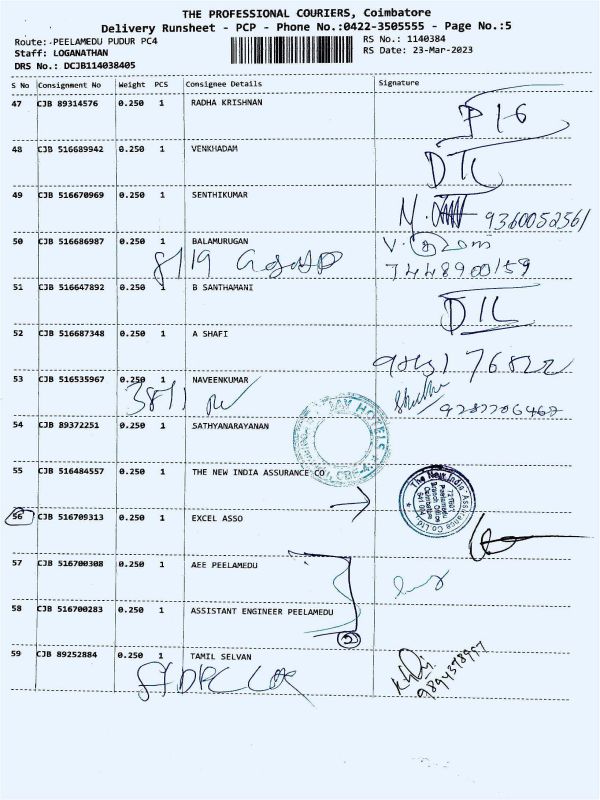 THE PROFESSIONAL COURIERS, Coimbatore
Delivery Runsheet - PCP - Phone No.:0422-3505555 - Page No.:5
Route: PEELAMEDU PUDUR PC4
RS No.: 1140384
Staff: LOGANATHAN
RS Date: 23-Mar-2023
DRS No.: DCJB114038405
S No Consignment No Weight PCS Consignee Details Signature
47 CJB 89314576 0.250 1 RADHA KRISHNAN
48 CJB 516689942 0.250 1 VENKHADAM
DTL
49 CJB 516670969 0.250 1 SENTHIKUMAR
9360052561
50 CJB 516686987 0.250 1 BALAMURUGAN
8/19
7448900159
51 CJB 516647892 1 0.250 1 B SANTHAMANI
52 CJB 516687348 0.250 1 A SHAFI
53 CJB 516535967 0.250 1 NAVEENKUMAR
54 CJB 89372251 0.250 1 SATHYANARAYANAN
HOTELS
55 CJB 516484557 0.250 1 THE NEW INDIA ASSURANCE CO
The New India Assurance Co Ltd
Peelamedu
Branch Office
Coimbatore
641 004
56 CJB 516709313 0.250 1 EXCEL ASSO
57 CJB 516700308 0.250 1 AEE PEELAMEDU
58 CJB 516700283 0.250 1 ASSISTANT ENGINEER PEELAMEDU
2
59 CJB 89252884 0.250 1 TAMIL SELVAN
9894378997